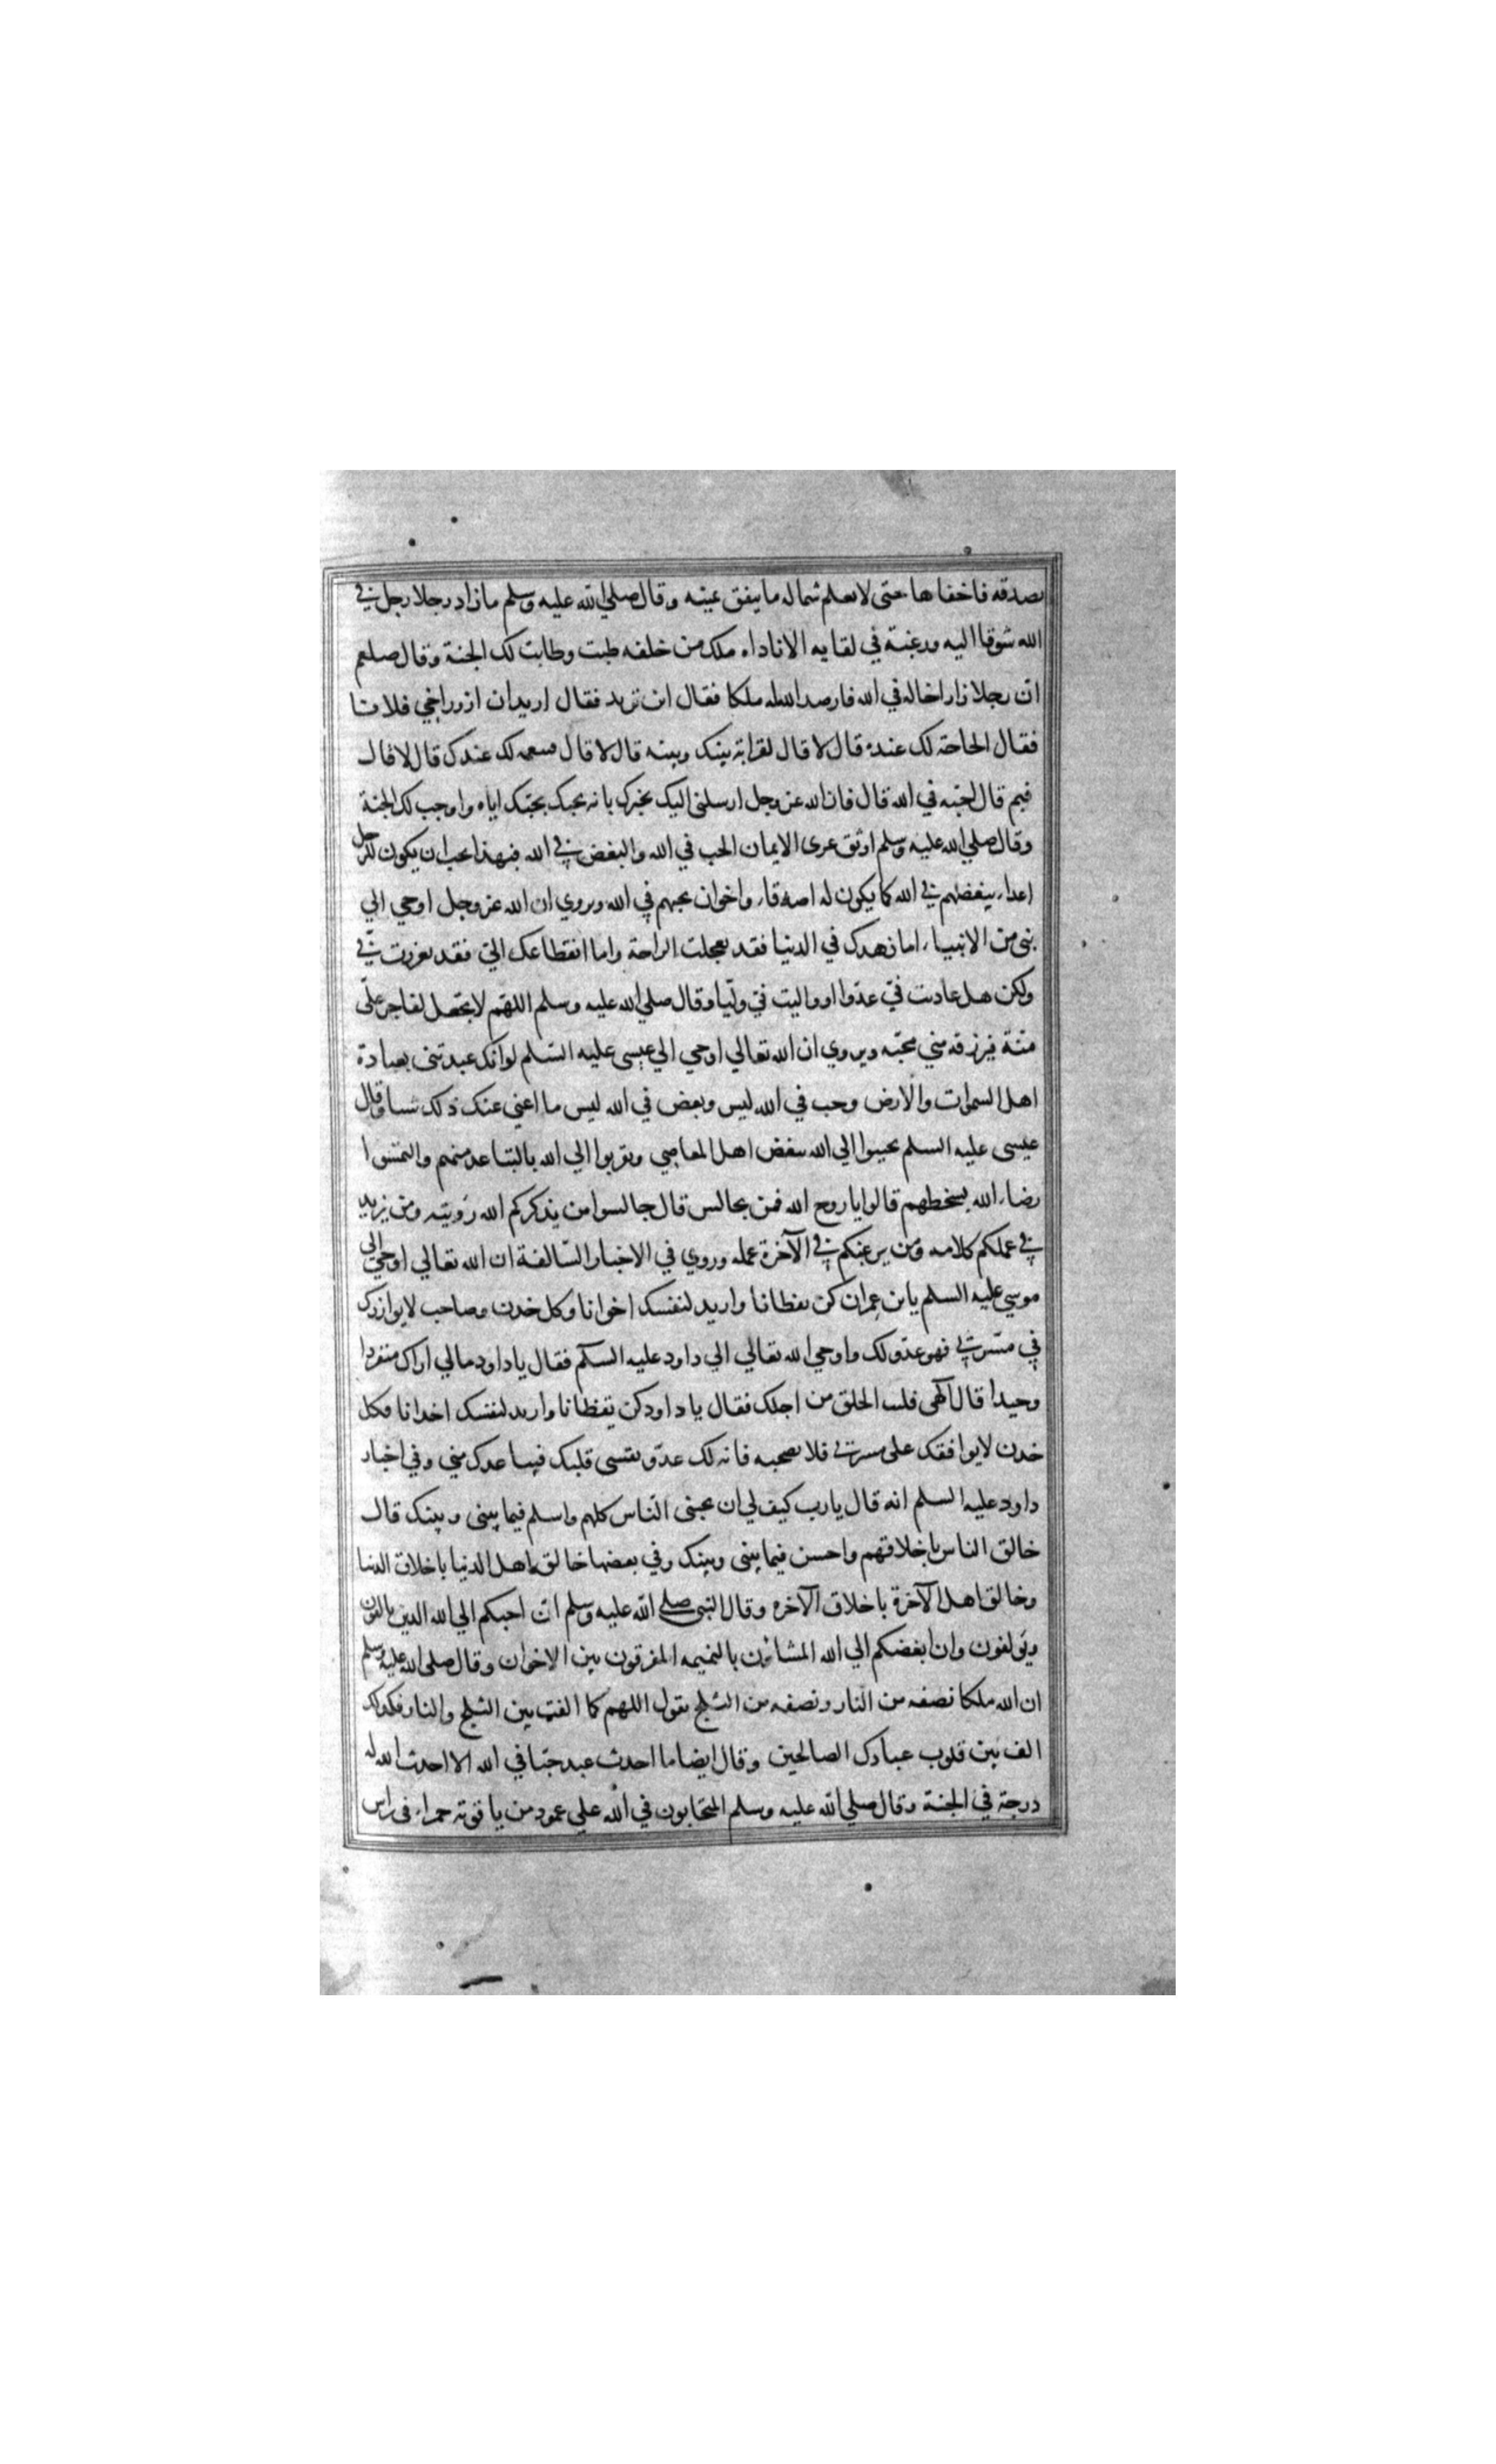 بصدقه فاخفاها حتى لا تعلم شماله ما ينفق يمينه وقال صلي الله عليه وسلم ما زار رجلا رجل في
الله شوقا اليه ورغبته في لقايه الا ناداه ملك من خلفه طبت وطابت لك الجنة وقال صلعم
ان رجلا زار اخاله في الله فارصد الله له ملكا فقال اين تريد فقال اريدان ازور اخي فلانا
فقال الحاجة لك عنده قال لا قال لقرابة بينك وبينه قال لا قال فبنعمه لك عندك قال لا قال
فبم قال احبه في الله قال فان الله عز وجل ارسلني اليك يخبرك بانه يحبك بحبك اياه واوجب لك الجنة
وقال صلي الله عليه وسلم اوثق عرى الايمان الحب في الله والبغض في الله فبهذا يجب ان يكون للرجل
اعداء يبغضهم في الله كما يكون له اصدقاء واخوان يحبهم في الله ويروي ان الله عز وجل اوحي الي
نبي من الانبياء اما زهدك في الدنيا فقد تعجلت الراحة واما انقطاعك الي فقد تعززت بي
ولكن هل عاديت في عدوا او واليت في وليا وقال صلي الله عليه وسلم اللهم لا تجعل لفاجر علي
منة فيرزقه مني محبه ويروي ان الله تعالي اوحي الي عيسى عليه السلم لو انك عبدتني بعبادة
اهل السموات والارض وحب في الله ليس وبغض في الله ليس ما اغني عنك ذلك شيا وقال
عيسى عليه السلم تحببوا الي الله ببغض اهل المعاصي وتقربوا الي الله بالتباعد منهم والتمسوا
رضاء الله بسخطهم قالوا يا روح الله فمن نجالس قال جالسوا من يذكركم الله رؤيته ومن يزيد
في عملكم كلامه ومن يرغبكم في الآخرة عمله وروي في الاخبار السالفة ان الله تعالي اوحي الي
موسي عليه السلم يا بن عمران كن يقظانا واريد لنفسك اخوانا وكل خدن وصاحب لا يوازرك
في مسرتي فهو عدو لك واوحي الله تعالي الي داود عليه السلم فقال يا داود مالي اراك منفردا
وحيدا قال الهي قليت الخلق من اجلك فقال يا داود كن يقظانا واريد لنفسك اخدانا فكل
خدن لا يوافقك على مسرتي فلا تصحبه فانه لك عدو يقسى قلبك فيباعدك مني وفي اخبار
داود عليه السلم انه قال يا رب كيف لي ان يحبنى الناس كلهم واسلم فيما بيني وبينك قال
خالق الناس باخلاقهم واحسن فيما بيني وبينك وفي بعضها خالق اهل الدنيا باخلاق الدنيا
وخالق اهل الآخرة باخلاق الآخره وقال النبي صلي الله عليه وسلم ان احبكم الي الله الذين يالفون
ويولفون وان ابغضكم الي الله المشاؤن بالنميمه المفرقون بين الاخوان وقال صلى الله عليه وسلم
ان لله ملكا نصفه من النار ونصفه من الثلج يقول اللهم كما الفت بين الثلج والنار فكذلك
الف بين قلوب عبادك الصالحين وقال ايضا ما احدث عبد حبا في الله الا احدث الله له
درجة في الجنة وقال صلي الله عليه وسلم المتحابون في الله علي عمود من ياقوته حمراء في راس